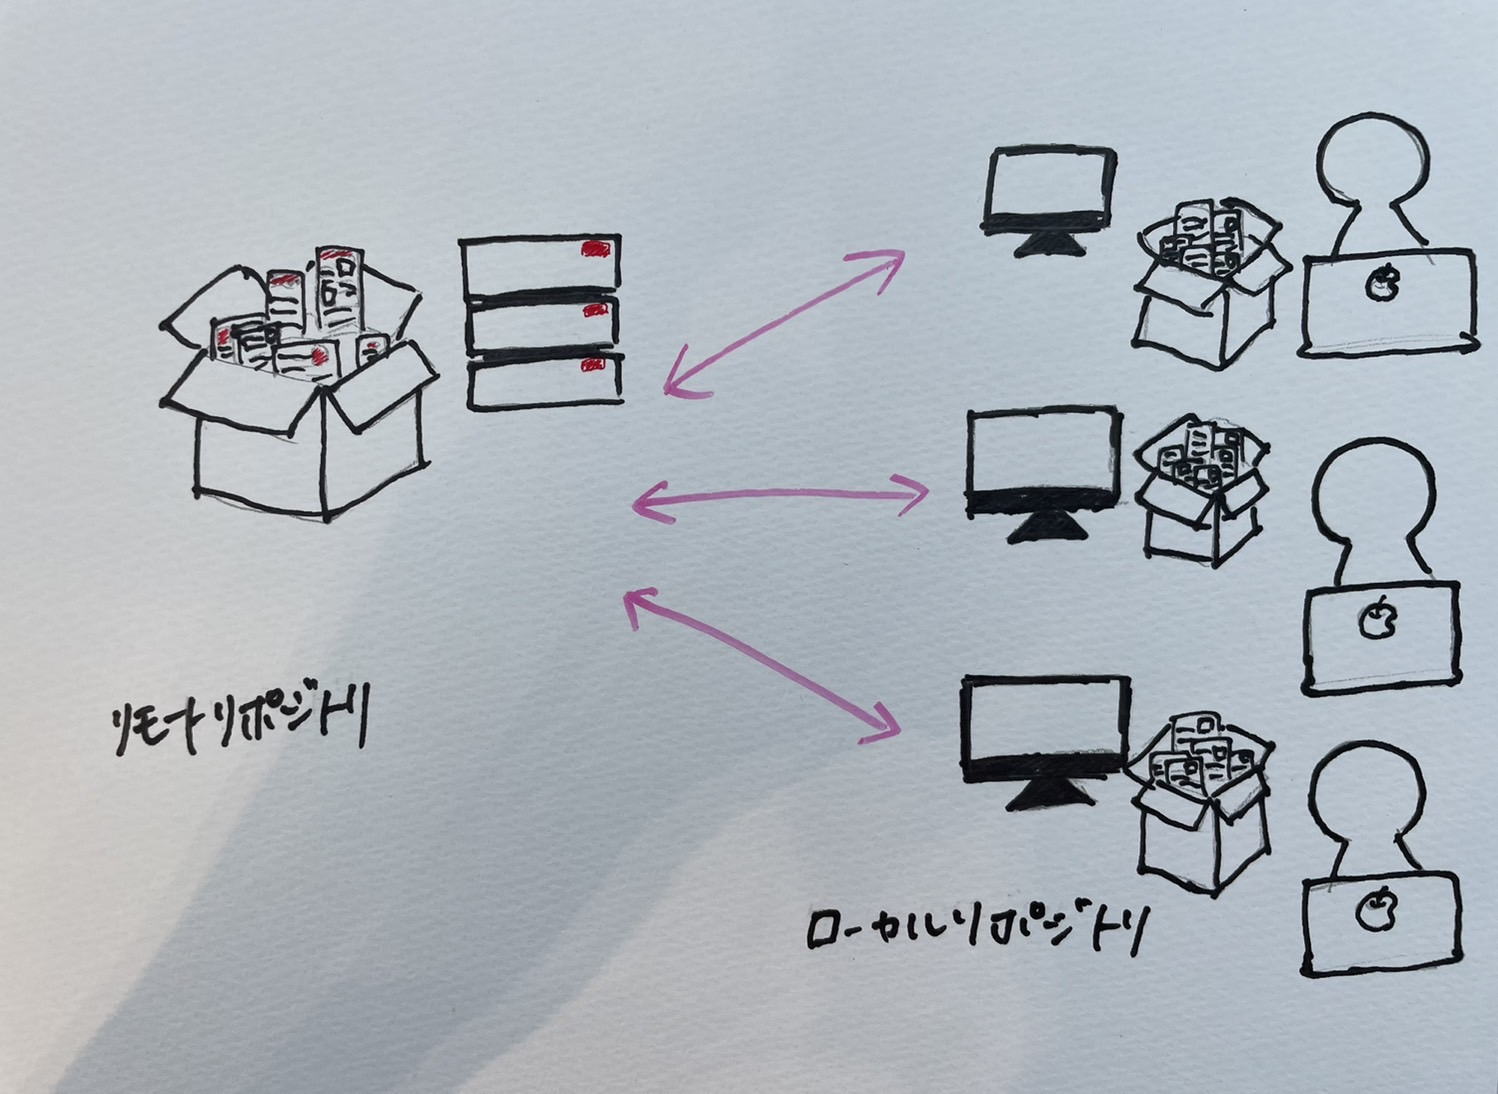 リモートリポジトリ
ローカルリポジトリ